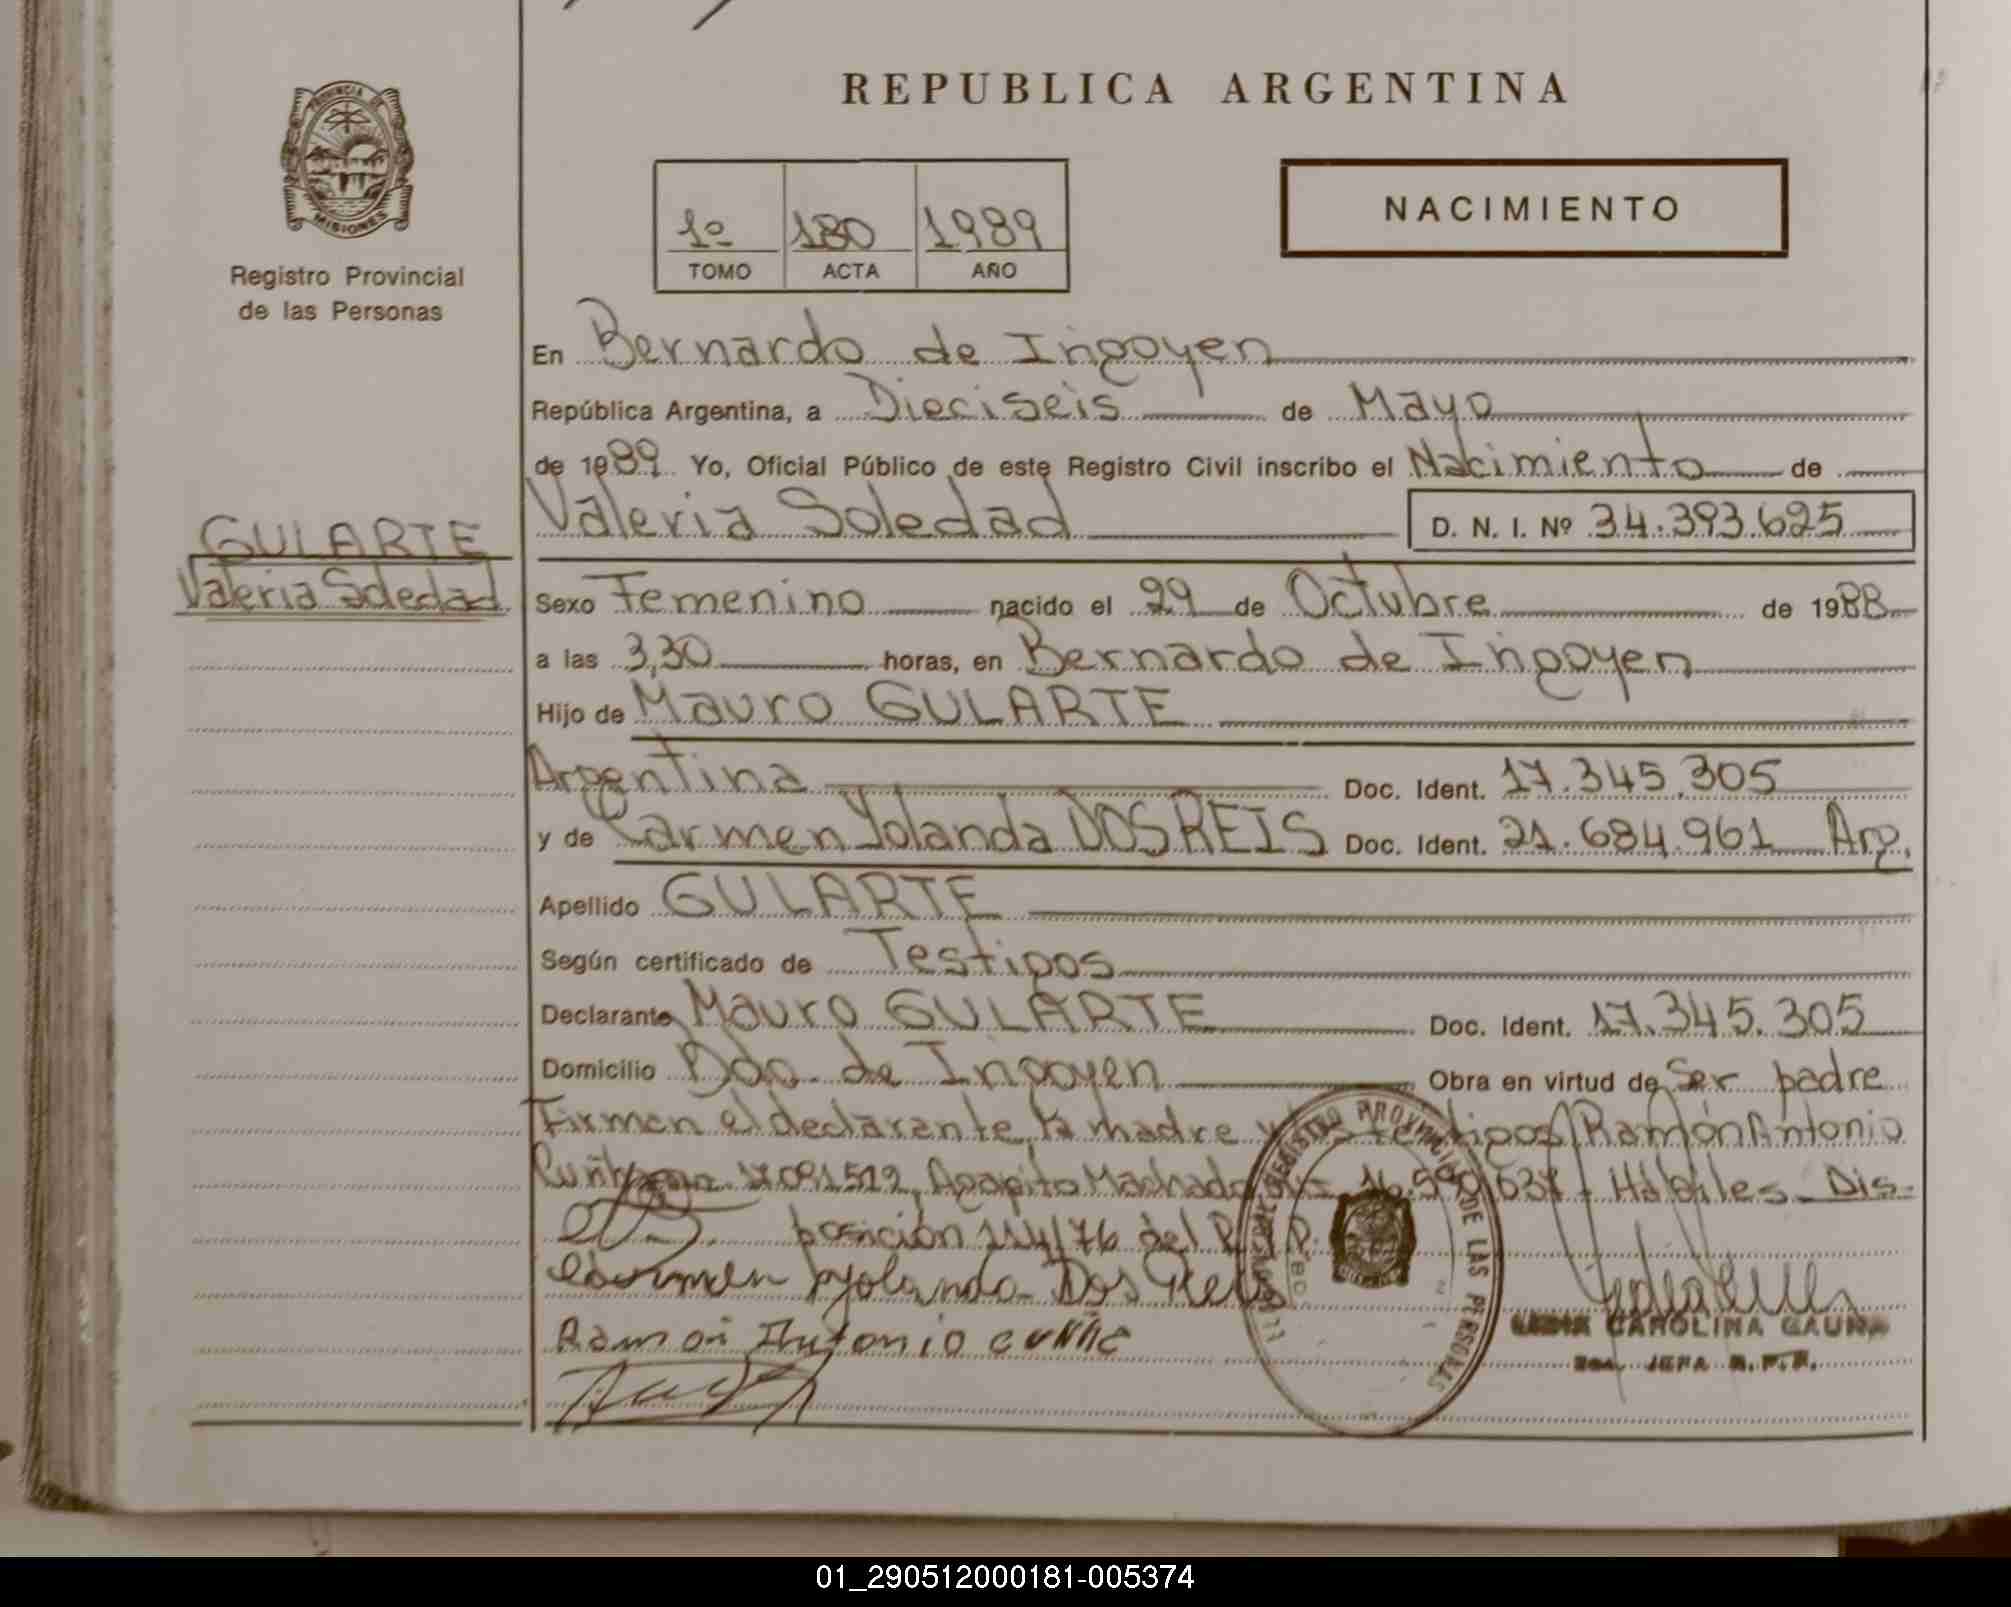 REPUBLICA ARGENTINA
PROVINCIA DE
MISIONES
Registro Provincial
de las Personas
1º 180 1989
TOMO ACTA AÑO
NACIMIENTO
En Bernardo de Irigoyen
República Argentina, a Dieciseis de Mayo
de 1989 Yo, Oficial Público de este Registro Civil inscribo el Nacimiento de
Valeria Soledad D. N. I. Nº 34.393.625
GULARTE
Valeria Soledad
Sexo Femenino nacido el 29 de Octubre de 1988
a las 3,30 horas, en Bernardo de Irigoyen
Hijo de Mauro GULARTE
Argentina Doc. Ident. 17.345.305
y de Carmen Yolanda DOS REIS Doc. Ident. 21.684.961 Arg.
Apellido GULARTE
Según certificado de Testigos
Declarante Mauro GULARTE Doc. Ident. 17.345.305
Domicilio Bdo. de Irigoyen Obra en virtud de ser padre
Firman el declarante, la madre y los testigos Ramón Antonio
17.091.512, Agapito Machado Hábiles - Dis-
posición 114/76 del R.P.P.
Carmen Yolanda Dos Reis
Ramon Antonio
REGISTRO PROVINCIAL DE LAS PERSONAS
CAROLINA GAUNA
JEFA R.P.P.
01_290512000181-005374